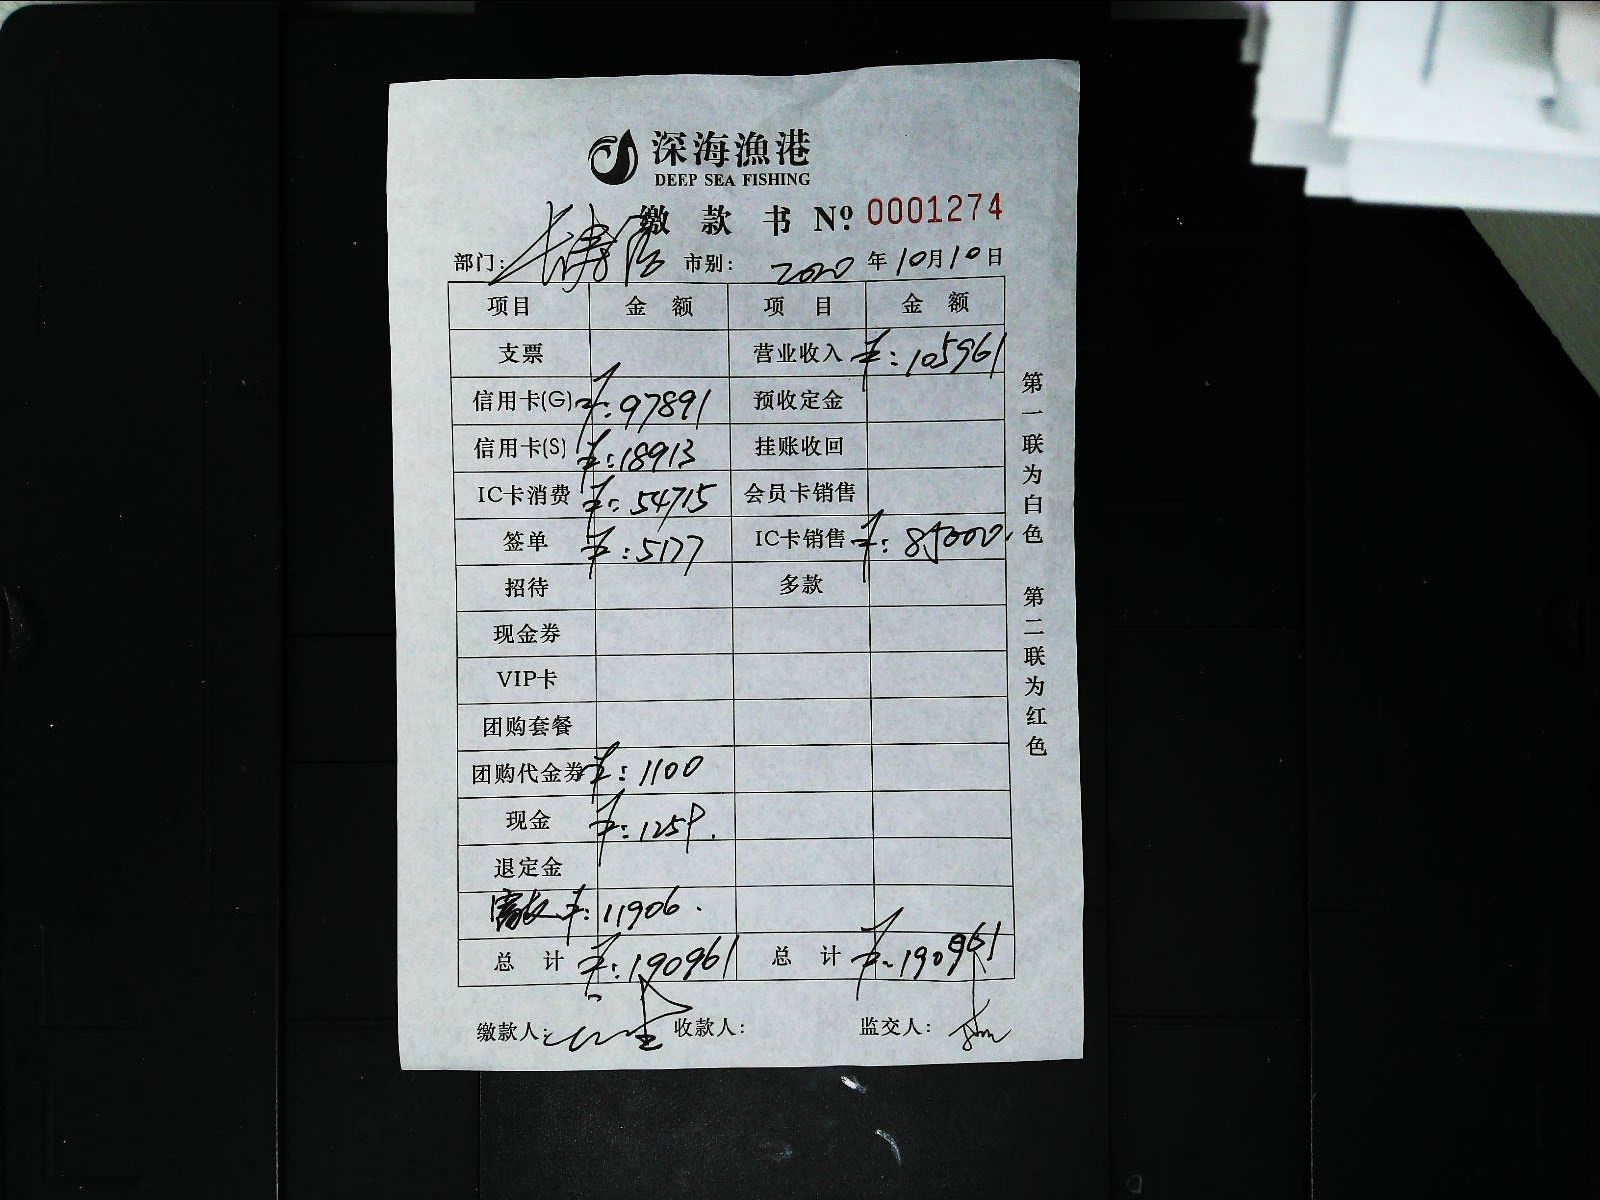 深海漁港
DEEP SEA FISHING
缴款书 Nº. 0001274
部门: 市别: 2020年10月10日
项目 金额 项目 金额
支票 营业收入 ¥:105961
信用卡(G) ¥:97891 预收定金
信用卡(S) ¥:18913 挂账收回
IC卡消费 ¥:54715 会员卡销售
签单 ¥:5177 IC卡销售 ¥:85000.
招待 多款
现金券
VIP卡
团购套餐
团购代金券 ¥:1100
现金 ¥:1259.
退定金
富友 ¥:11906.
总计 ¥:190961 总计 ¥:190961
缴款人: 收款人: 监交人:
第一联为白色 第二联为红色